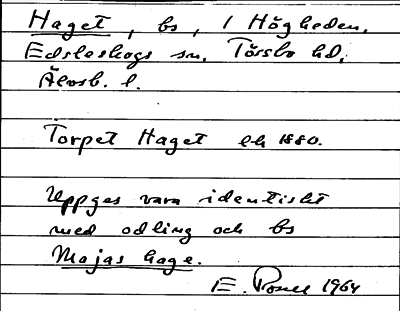 Haget, bs, 1 Högheden,
Edsleskogs sn, Tössbo hd,
Älvsb. l.
Torpet Haget ek 1880.
Uppges vara identiskt
med odling och bs
Majas hage.
E. 1964